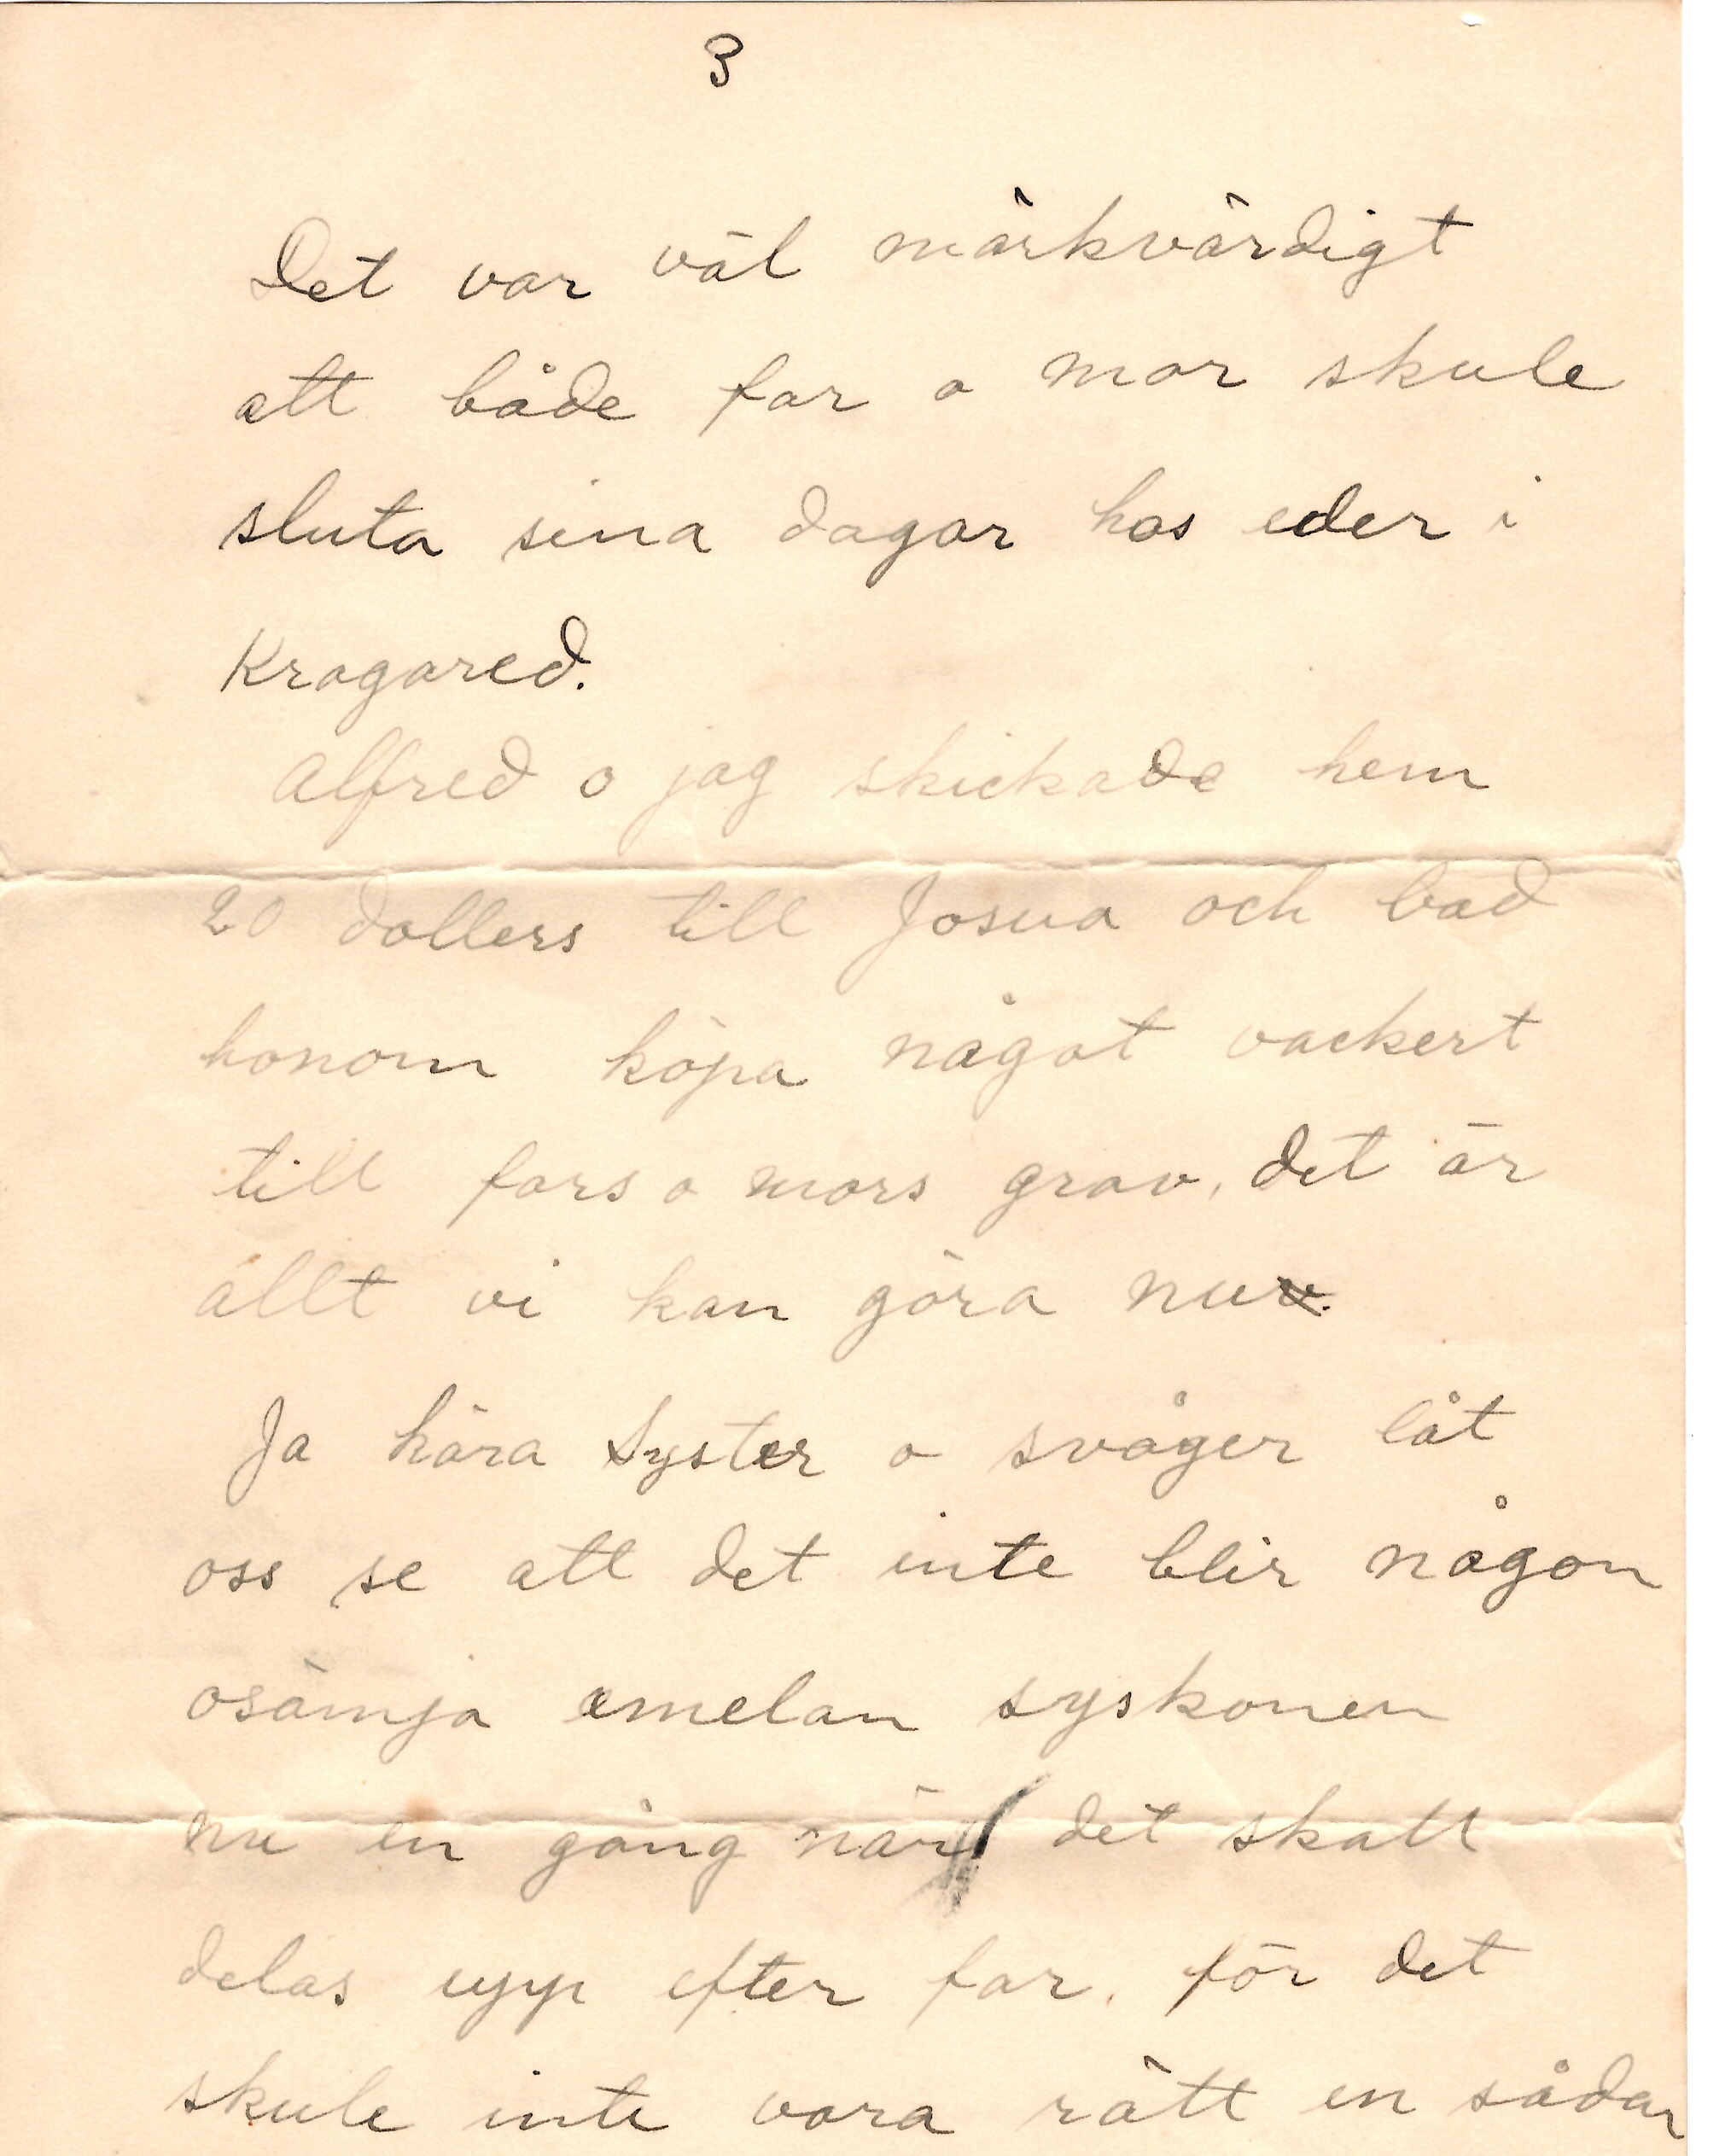 3
Det var väl märkvärdigt
att både far o mor skule
sluta sina dagar hos eder i
Kragared.
Alfred o jag skickade hem
20 dollers till Josua och bad
honom köpa något vackert
till fars o mors grav, det är
allt vi kan göra nu.
Ja kära Syster o svåger låt
oss se att det inte blir någon
osämja emelan syskonen
nu en gång när det skall
delas upp efter far. för det
skule inte vara rätt en sådan